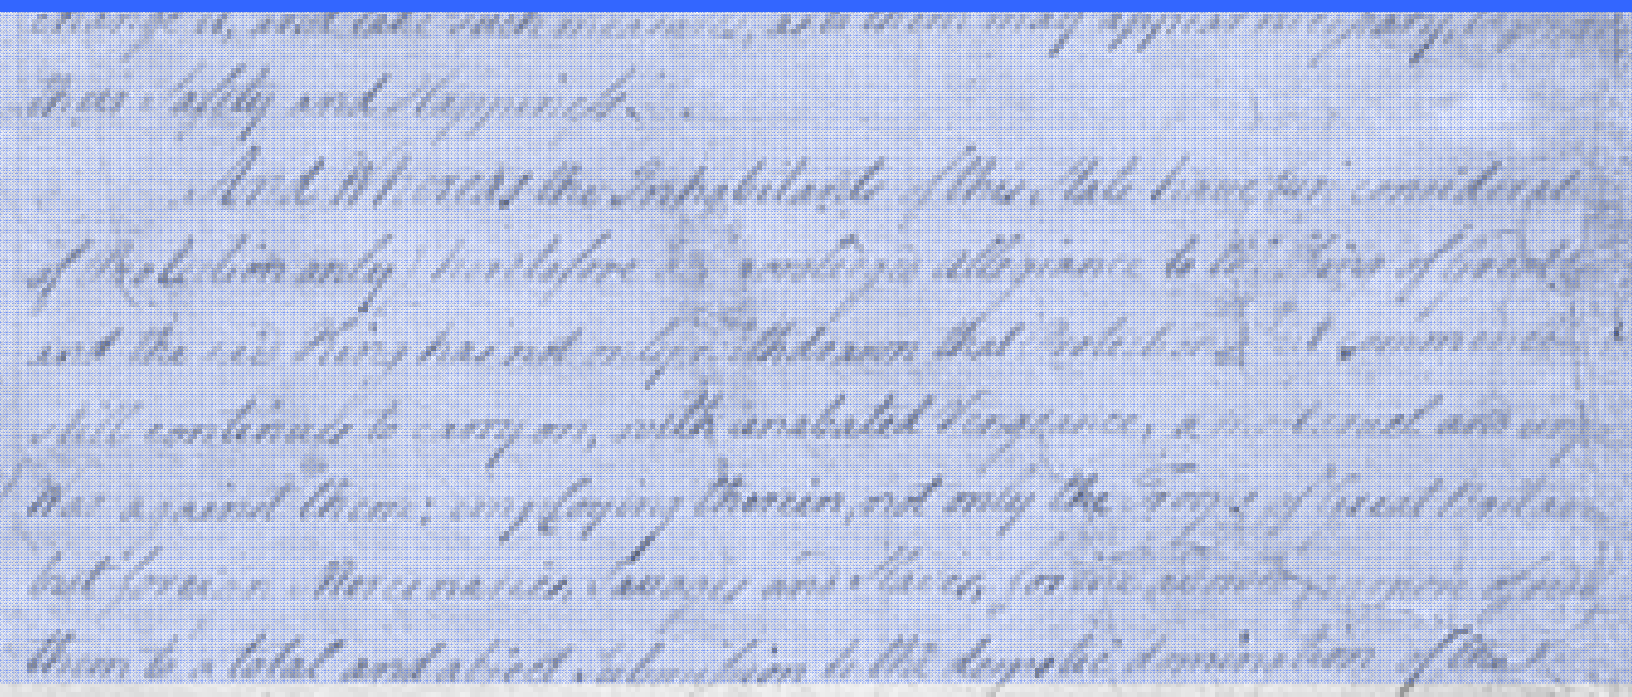 change it, and take such measures, as to them may appear necessary to promote
their Safety and Happiness.
And Whereas the Inhabitants of this State have in consideration
of Protection only heretofore acknowledged allegiance to the King of Great
and the said King has not only withdrawn that Protection but commenced
still continues to carry on, with unabated Vengeance, a most cruel and
War against them; employing therein, not only the Troops of Great Britain
but foreign Mercenaries, Savages and Slaves, for the avowed purpose of
them to a total and abject submission to the despotic domination of the